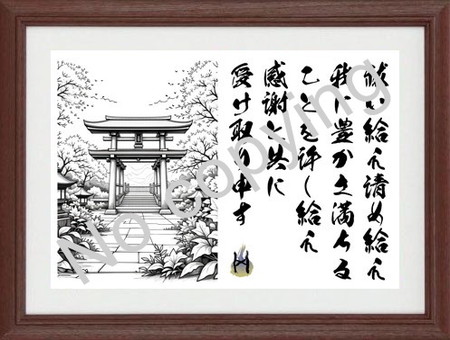 祓い給え清め給え
我に豊かさ満ちる
ことを許し給え
感謝と共に
受け取り申す
No copying